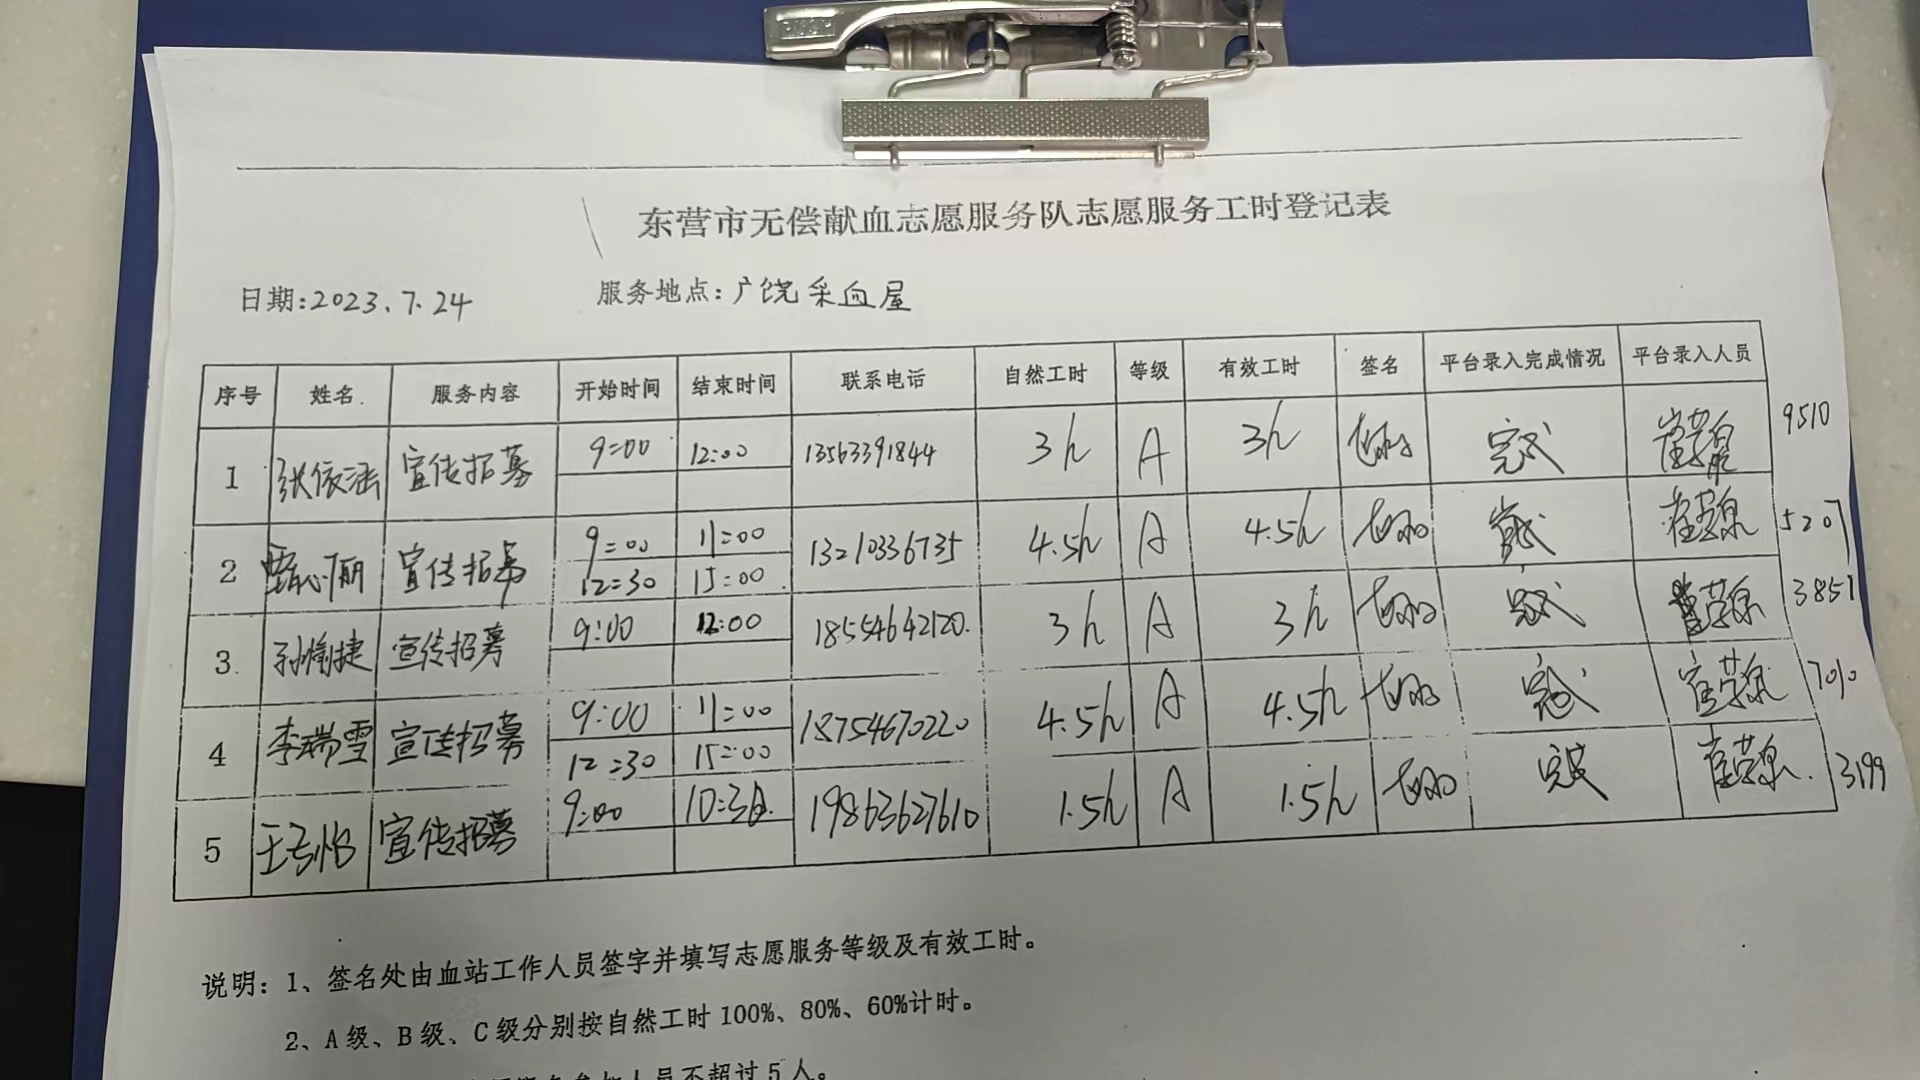 东营市无偿献血志愿服务队志愿服务工时登记表
日期:2023.7.24 服务地点:广饶采血屋
序号 姓名 服务内容 开始时间 结束时间 联系电话 自然工时 等级 有效工时 签名 平台录入完成情况 平台录入人员
1 张依涵 宣传招募 9:00 12:00 13563391844 3h A 3h 完成 9510
2 甄心丽 宣传招募 9:00 11:00 13210336735 4.5h A 4.5h 完成 5207
12:30 15:00
3 宣传招募 9:00 12:00 18554642120 3h A 3h 完成 3851
4 李瑞雪 宣传招募 9:00 11:00 18754670220 4.5h A 4.5h 完成
12:30 15:00
5 宣传招募 9:00 10:30 19863627610 1.5h A 1.5h 完成 3199
说明:1、签名处由血站工作人员签字并填写志愿服务等级及有效工时。
2、A级、B级、C级分别按自然工时100%、80%、60%计时。
人员不超过5人。